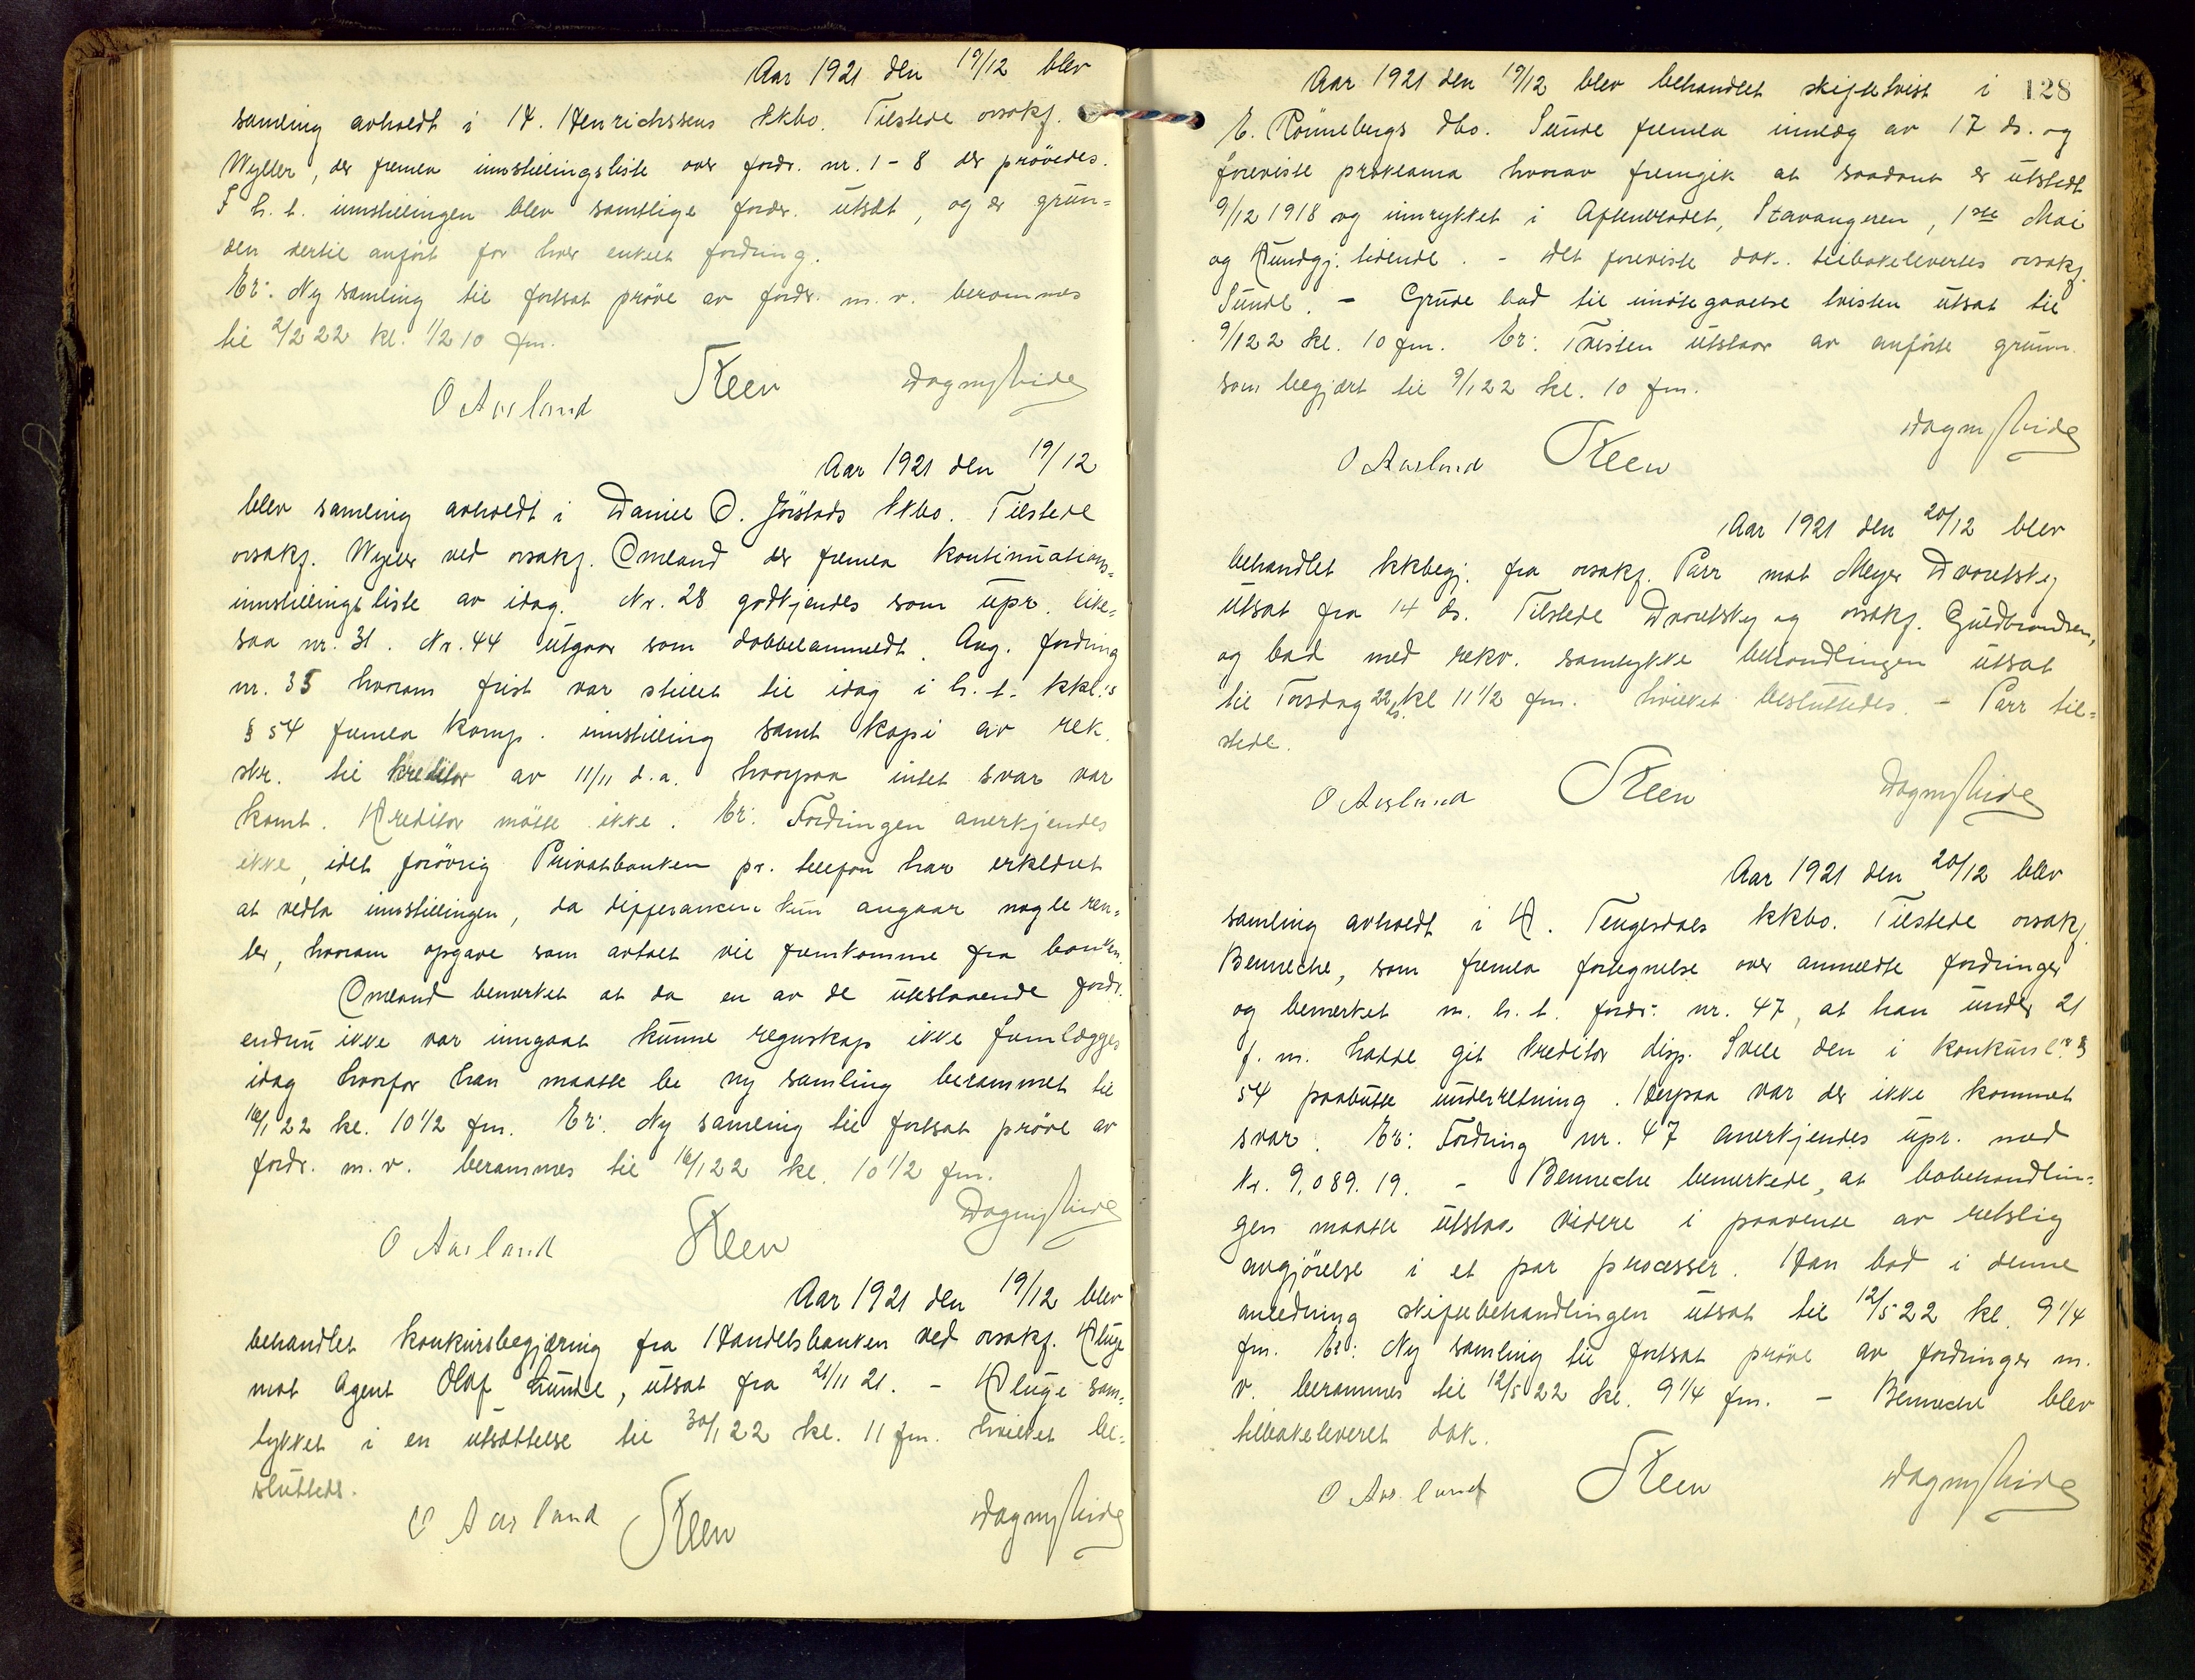 Aar 1921 den 19/12 blev
samling avholdt i H. Henrichssens kkbo. Tilstede orsakf.
Wyller, der fremla innstillingsliste over fordr. nr. 1-8 der prövedes.
I h. t. innstillingen blev samtlige fordr. utsat, og er grun-
den dertil anfört for hver enkelt fordring.
Er: Ny samling til fortsat pröve av fordr. m. v. berammes
til 2/2 22 kl. 1/2 10 fm.
O Aarland Steen Dagny Eide
Aar 1921 den 19/12
blev samling avholdt i Daniel O. Jörstads kkbo. Tilstede
orsakf. Wyller ved orsakf. Omland der fremla kontinuations-
innstillingsliste av idag. Nr. 28 godkjendes som upr. like-
saa nr. 31. Nr. 44 utgaar som dobbelanmeldt. Ang. fordring
nr. 35 hvorom frist var stillet til idag i h. t. kkl.'s
§ 54 fremla komp. innstilling samt kopi av rek.
skr. til kreditor av 11/11 d.a. hvorpaa intet svar var
komt. Kreditor mötte ikke. Er: Fordringen anerkjendes
ikke, idet forövrig Privatbanken pr. telefon har erklæret
at vedta innstillingen, da differansen kun angaar nogle ren-
ter, hvorom opgave som avtalt vil fremkomme fra banken.
Omland bemerket at da en av de utestaaende fordr.
endnu ikke var inngaat kunne regnskap ikke fremlægges
idag hvorfor han maatte be ny samling berammet til
16/1 22 kl. 10 1/2 fm. Er: Ny samling til fortsat pröve av
fordr. m. v. berammes til 16/1 22 kl. 10 1/2 fm.
O Aarland Steen Dagny Eide
Aar 1921 den 19/12 blev
behandlet konkursbegjæring fra Handelsbanken ved orsakf. Kluge
mot Agent Olaf Lunde, utsat fra 21/11 21. - Kluge sam-
tykket i en utsættelse til 30/1 22 kl. 11 fm. hvilket be-
sluttedes.
O Aarland Steen Dagny Eide
128
Aar 1921 den 19/12 blev behandlet skiftetvist i
E. Rönnebergs dbo. Sunde fremla innlæg av 17 ds. og
foreviste proklama hvorav fremgik at saadant er utstedt
9/12 1918 og innrykket i Aftenbladet, Stavangeren, 1ste Mai
og Kundgj. tidende. - Det foreviste dok. tilbakelevertes orsakf.
Sunde. - Grude bad til imötegaaelse tvisten utsat til
9/1 22 kl. 10 fm. Er: Tvisten utstaar av anförte grunn
som begjært til 9/1 22 kl. 10 fm.
O Aarland Steen Dagny Eide
Aar 1921 den 20/12 blev
behandlet kkbegj. fra orsakf. Parr mot Meyer Dvoretsky
utsat fra 14 ds. Tilstede Dvoretsky og orsakf. Guldbrandsen,
og bad med rekv. samtykke behandlingen utsat
til Torsdag 22 ds. kl 11 1/2 fm. hvilket besluttedes. - Parr til-
stede.
O Aarland Steen Dagny Eide
Aar 1921 den 20/12 blev
samling avholdt i K. Tengesdals kkbo. Tilstede orsakf.
Benneche, som fremla fortegnelse over anmeldte fordringer
og bemerket m. h. t. fordr: nr. 47, at han under 21
f. m. hadde git kreditor disp. Svele den i konkursl's §
54 paabutte underretning. Herpaa var der ikke kommet
svar. Er: Fordring nr. 47 anerkjendes upr. med
Kr. 9.089.19. - Benneche bemerkede, at bobehandlin-
gen maatte utstaa videre i paavente av retslig
avgjörelse i et par processer. Han bad i denne
anledning skiftebehandlingen utsat til 12/5 22 kl. 9 1/4
fm. Er: Ny samling til fortsat pröve av fordringer m.
v. berammes til 12/5 22 kl. 9 1/4 fm. - Benneche blev
tilbakeleveret dok.
O Aarland Steen Dagny Eide